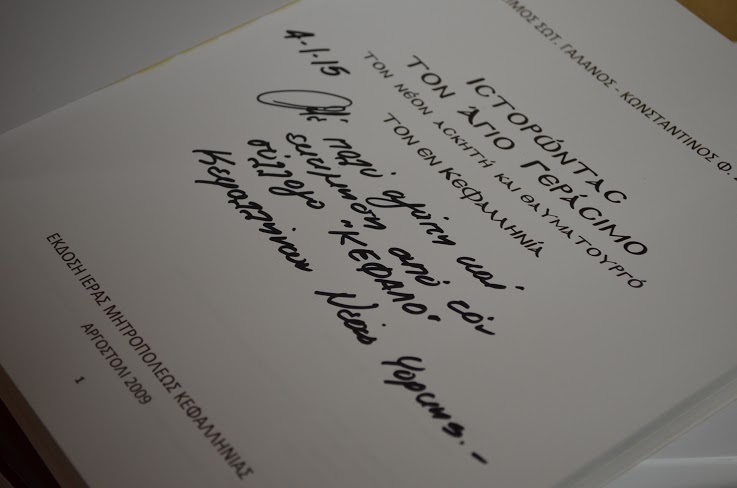 ΙΜΟΣ ΣΩΤ. ΓΑΛΑΝΟΣ - ΚΩΝΣΤΑΝΤΙΝΟΣ Φ.
ΙCΤΟΡΏΝΤΑC
ΤΟΝ ΆΓΙΟ ΓΕΡΆCΙΜΟ
ΤΟΝ ΝΈΟΝ ΑCΚΗΤΉ ΚΑΙ ΘΑΥΜΑΤΟΥΡΓΌ
ΤΟΝ ΕΝ ΚΕΦΑΛΛΗΝΊΑ
4-1-15
Με πολύ αγάπη και
εκτίμηση από τον
σύλλογο "ΚΕΦΑΛΟ"
Κεφαλλήνων Νέας Υόρκης.-
ΕΚΔΟΣΗ ΙΕΡΑΣ ΜΗΤΡΟΠΟΛΕΩΣ ΚΕΦΑΛΛΗΝΙΑΣ
ΑΡΓΟΣΤΟΛΙ 2009
1